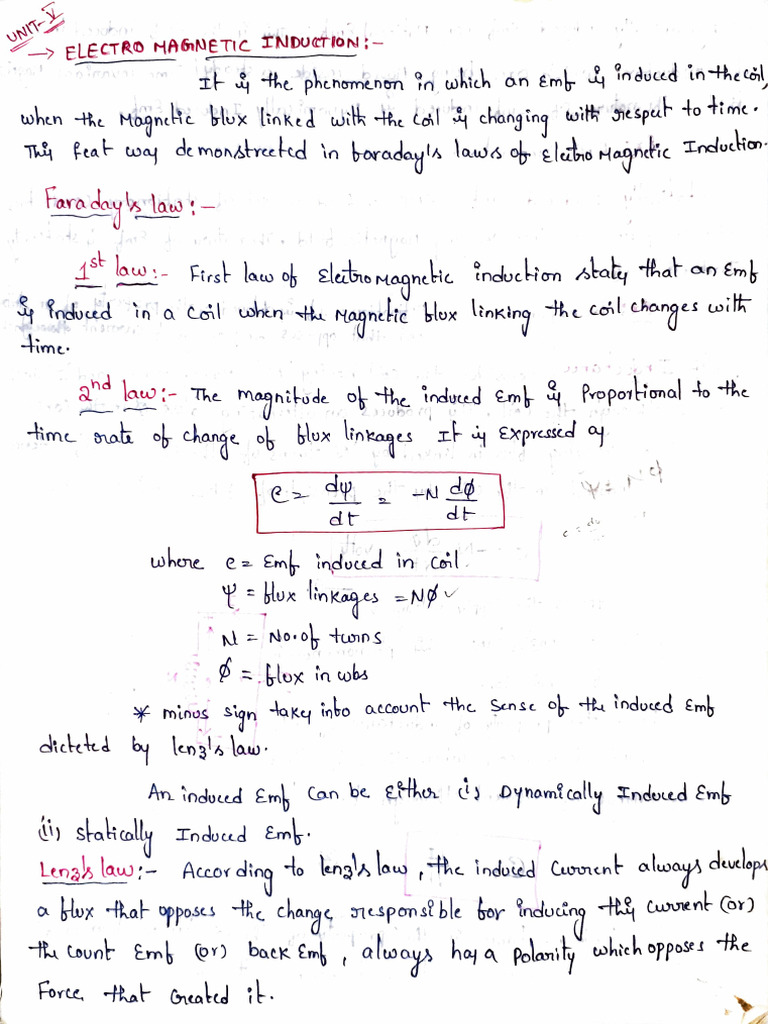 UNIT-V
→ ELECTRO MAGNETIC INDUCTION:-
It is the phenomenon in which an Emf is induced in the coil,
when the Magnetic flux linked with the coil is changing with respect to time.
This feat was demonstreeted in faraday's laws of Electro Magnetic Induction.
Faraday's law:-
1st law:- First law of Electro Magnetic induction states that an Emf
is induced in a coil when the Magnetic flux linking the coil changes with
time.
2nd law:- The magnitude of the induced Emf is Proportional to the
time rate of change of flux linkages It is Expressed as
e = dψ/dt = -N dφ/dt
where e = Emf induced in coil.
ψ = flux linkages = Nφ ✓
N = No. of turns
φ = flux in wbs
* minus sign takes into account the sense of the induced Emf
dicteted by lenz's law.
An induced Emf can be Either (i) Dynamically Induced Emf
(ii) statically Induced Emf.
Lenz's law:- According to lenz's law, the induced current always develops
a flux that opposes the change responsible for inducing this current (or)
the count Emf (or) back Emf, always has a polarity which opposes the
Force that created it.